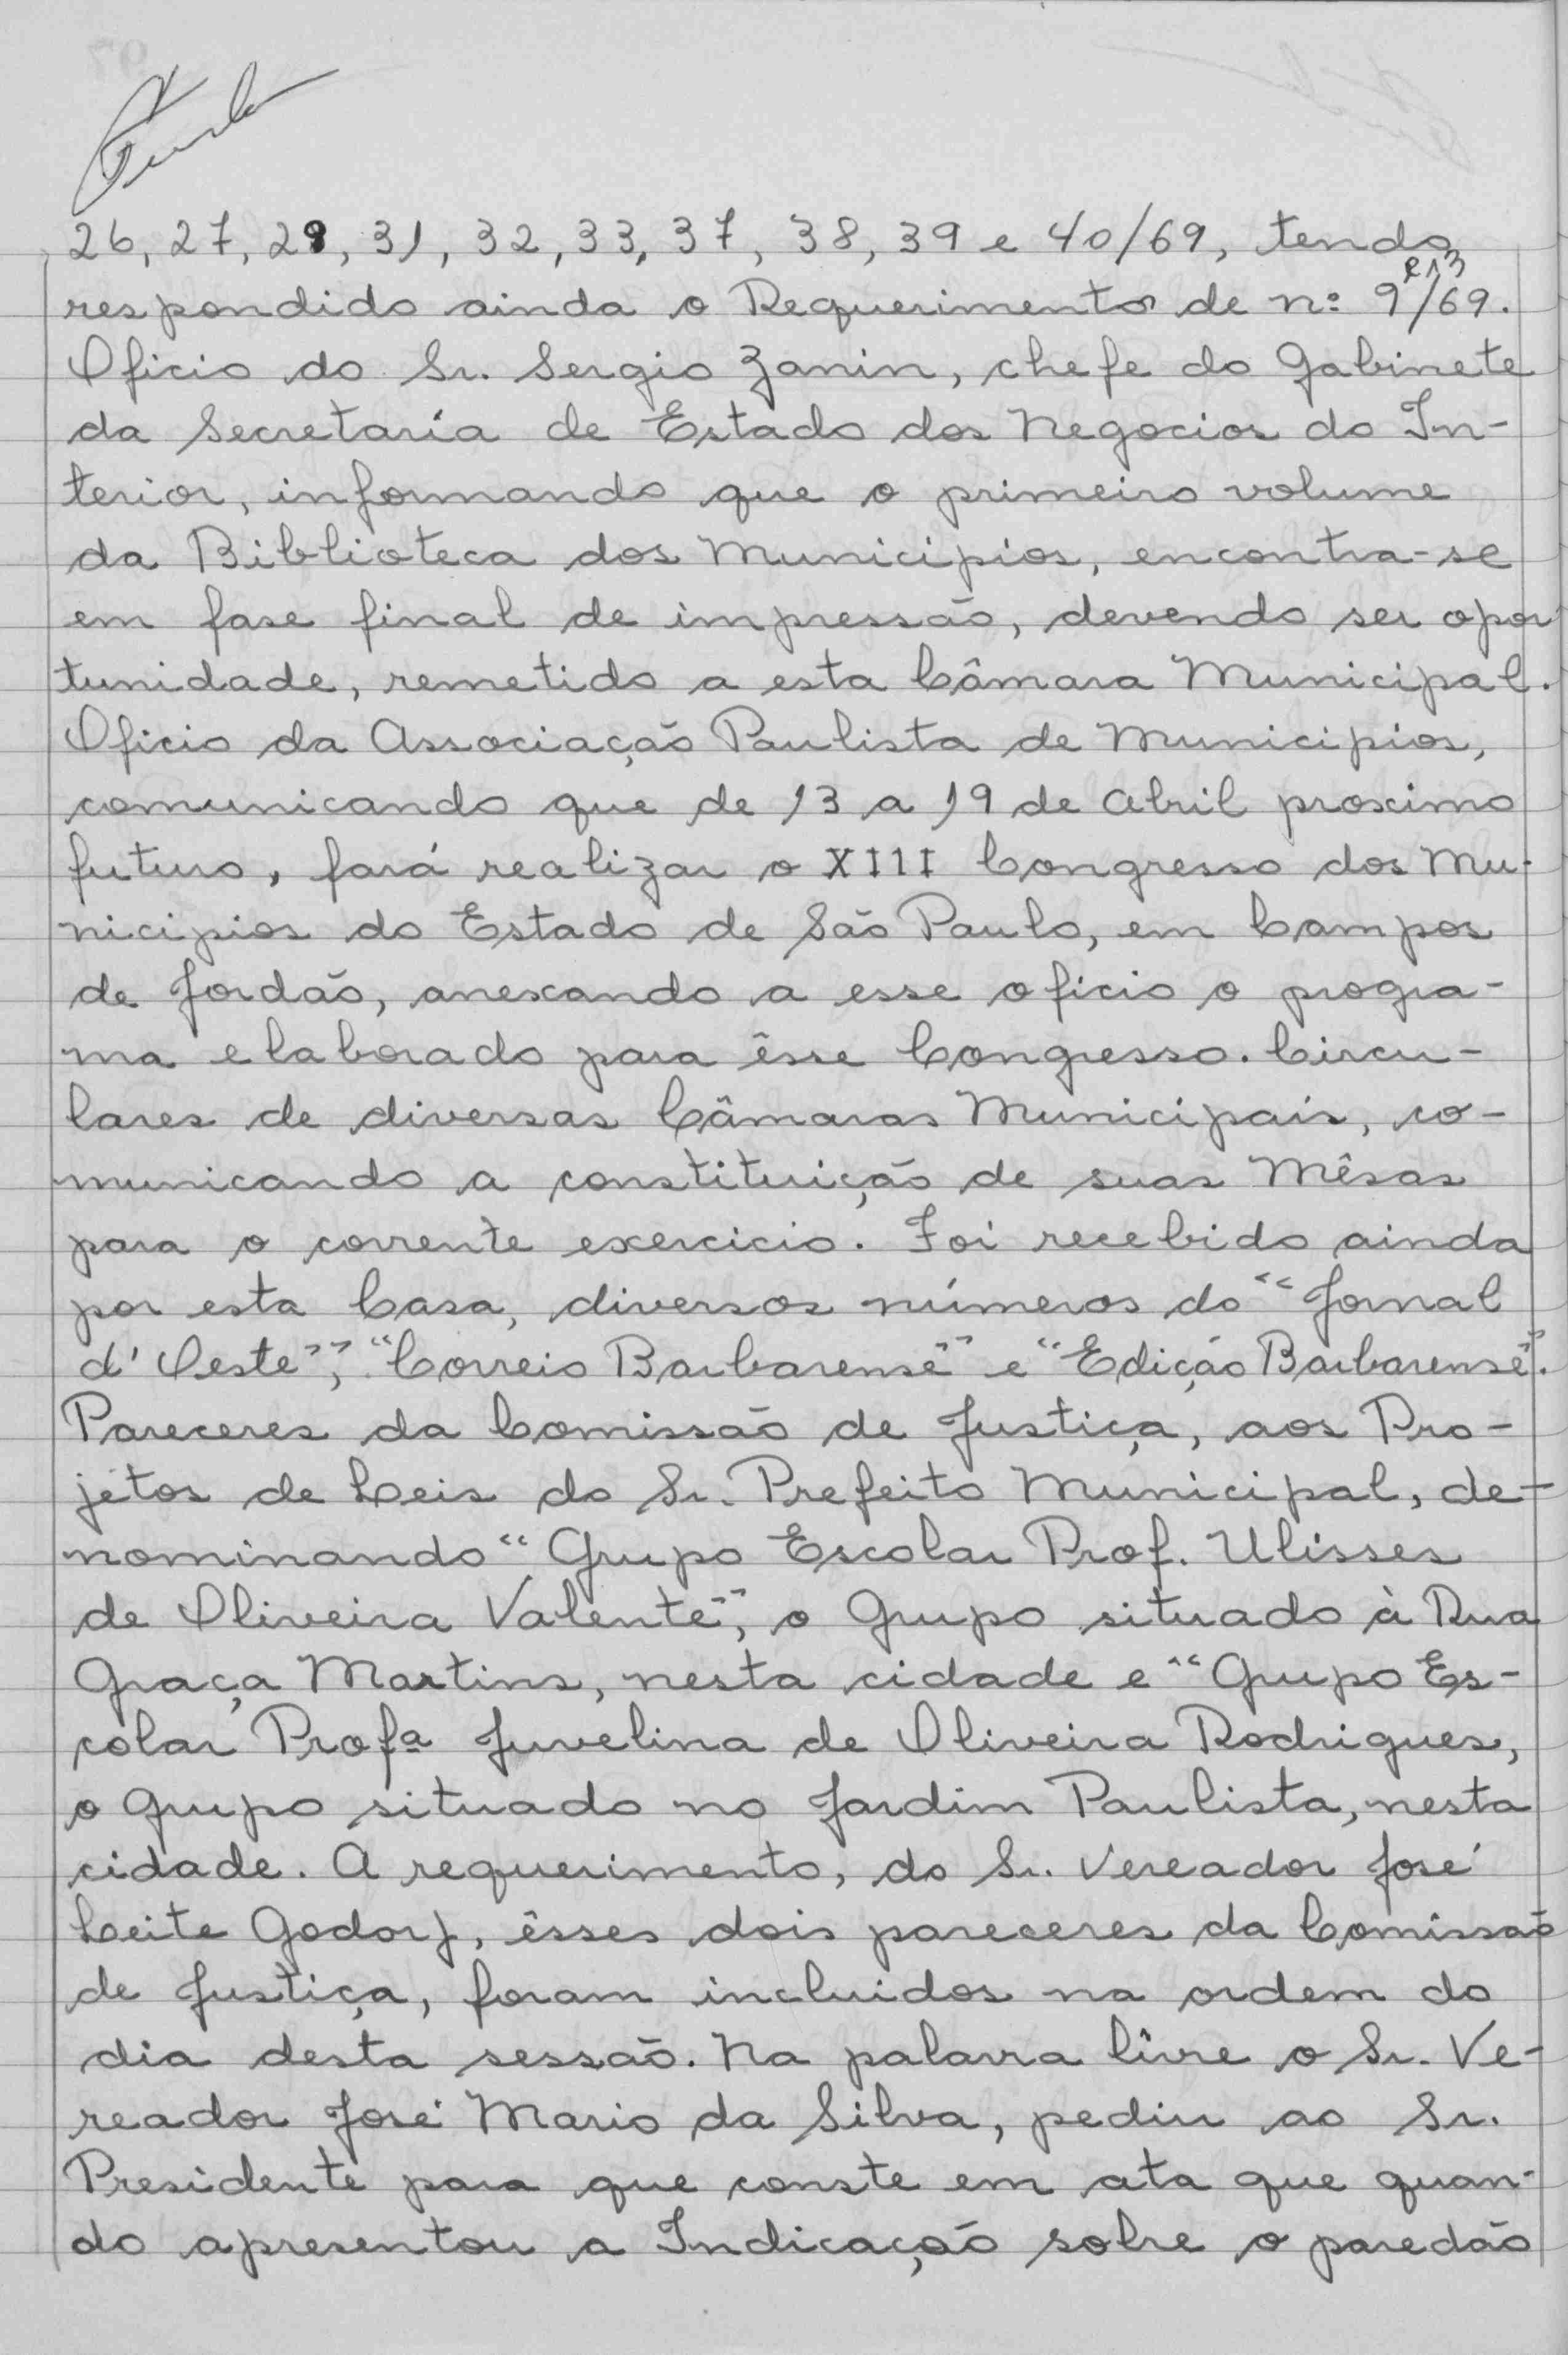 26, 27, 28, 31, 32, 33, 37, 38, 39 e 40/69, tendo
respondido ainda o Requerimentos de nº 9 e 13/69.
Oficio do Sr. Sergio Zanin, chefe do Gabinete
da Secretaria de Estado dos Negocios do In-
terior, informando que o primeiro volume
da Biblioteca dos Municipios, encontra-se
em fase final de impressão, devendo ser opor
tunidade, remetido a esta Câmara Municipal.
Oficio da Associação Paulista de Municipios,
comunicando que de 13 a 19 de Abril proximo
futuro, fará realizar o XIII Congresso dos Mu-
nicipios do Estado de São Paulo, em Campos
de Jordão, anexando a esse oficio o progra-
ma elaborado para êsse Congresso. Circu-
lares de diversas Câmaras Municipais, co-
municando a constituição de suas Mêsas
para o corrente exercicio. Foi recebido ainda
por esta Casa, diversos números do "Jornal
d'Oeste", "Correio Barbarense" e "Edição Barbarense".
Pareceres da Comissão de Justiça, aos Pro-
jetos de Leis do Sr. Prefeito Municipal, de-
nominando "Grupo Escolar Prof. Ulisses
de Oliveira Valente", o Grupo situado à Rua
Graça Martins, nesta cidade e "Grupo Es-
colar Profª Juvelina de Oliveira Rodrigues,
o Grupo situado no Jardim Paulista, nesta
cidade. A requerimento, do Sr. Vereador José
Leite Godoy, êsses dois pareceres da Comissão
de Justiça, foram incluidos na ordem do
dia desta sessão. Na palavra livre o Sr. Ve-
reador José Mario da Silva, pediu ao Sr.
Presidente para que conste em ata que quan-
do apresentou a Indicação sobre o paredão